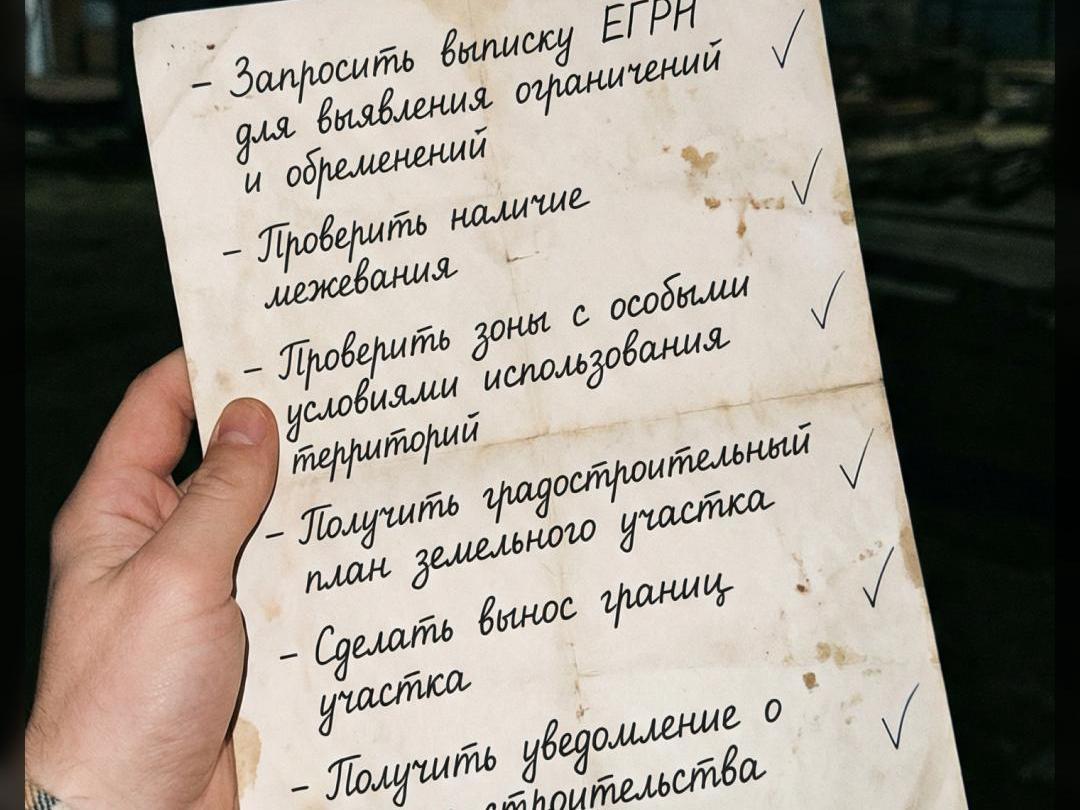 - Запросить выписку ЕГРН
для выявления ограничений
и обременений
- Проверить наличие
межевания
- Проверить зоны с особыми
условиями использования
территорий
- Получить градостроительный
план земельного участка
- Сделать вынос границ
участка
- Получить уведомление о
строительства